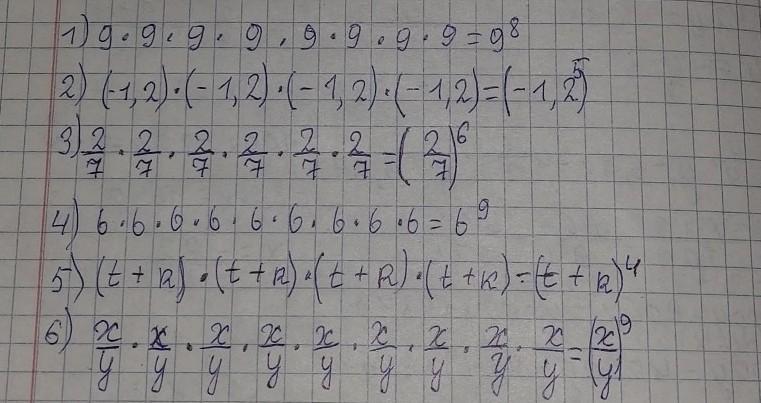 1) 9 · 9 · 9 · 9 · 9 · 9 · 9 · 9 = 9⁸
2) (-1,2) · (-1,2) · (-1,2) · (-1,2) = (-1,2)⁵
3) 2/7 · 2/7 · 2/7 · 2/7 · 2/7 · 2/7 = (2/7)⁶
4) 6 · 6 · 6 · 6 · 6 · 6 · 6 · 6 · 6 = 6⁹
5) (t + k) · (t + k) · (t + k) · (t + k) = (t + k)⁴
6) x/y · x/y · x/y · x/y · x/y · x/y · x/y · x/y · x/y = (x/y)⁹